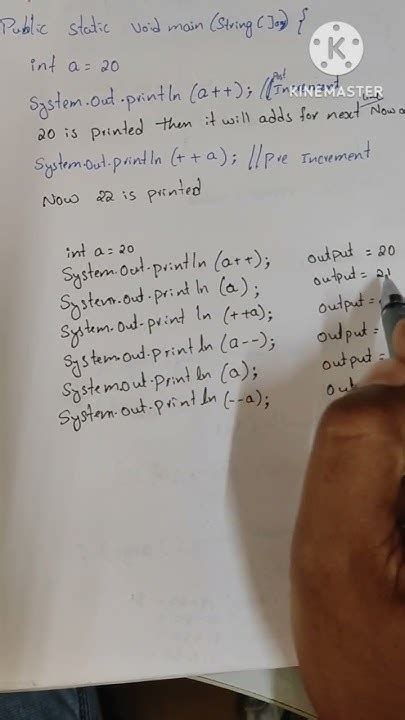 Public static void main (String []ar) {
int a = 20
System.out.println (a++); // Post Increment
KINEMASTER
20 is printed then it will adds for next Now a
System.out.println (++a); // Pre Increment
Now 22 is printed
int a=20
System.out.println (a++); output = 20
System.out.println (a); output = 21
System.out.println (++a); output =
System.out.println (a--); output =
System.out.println (a); output =
System.out.println (--a); out